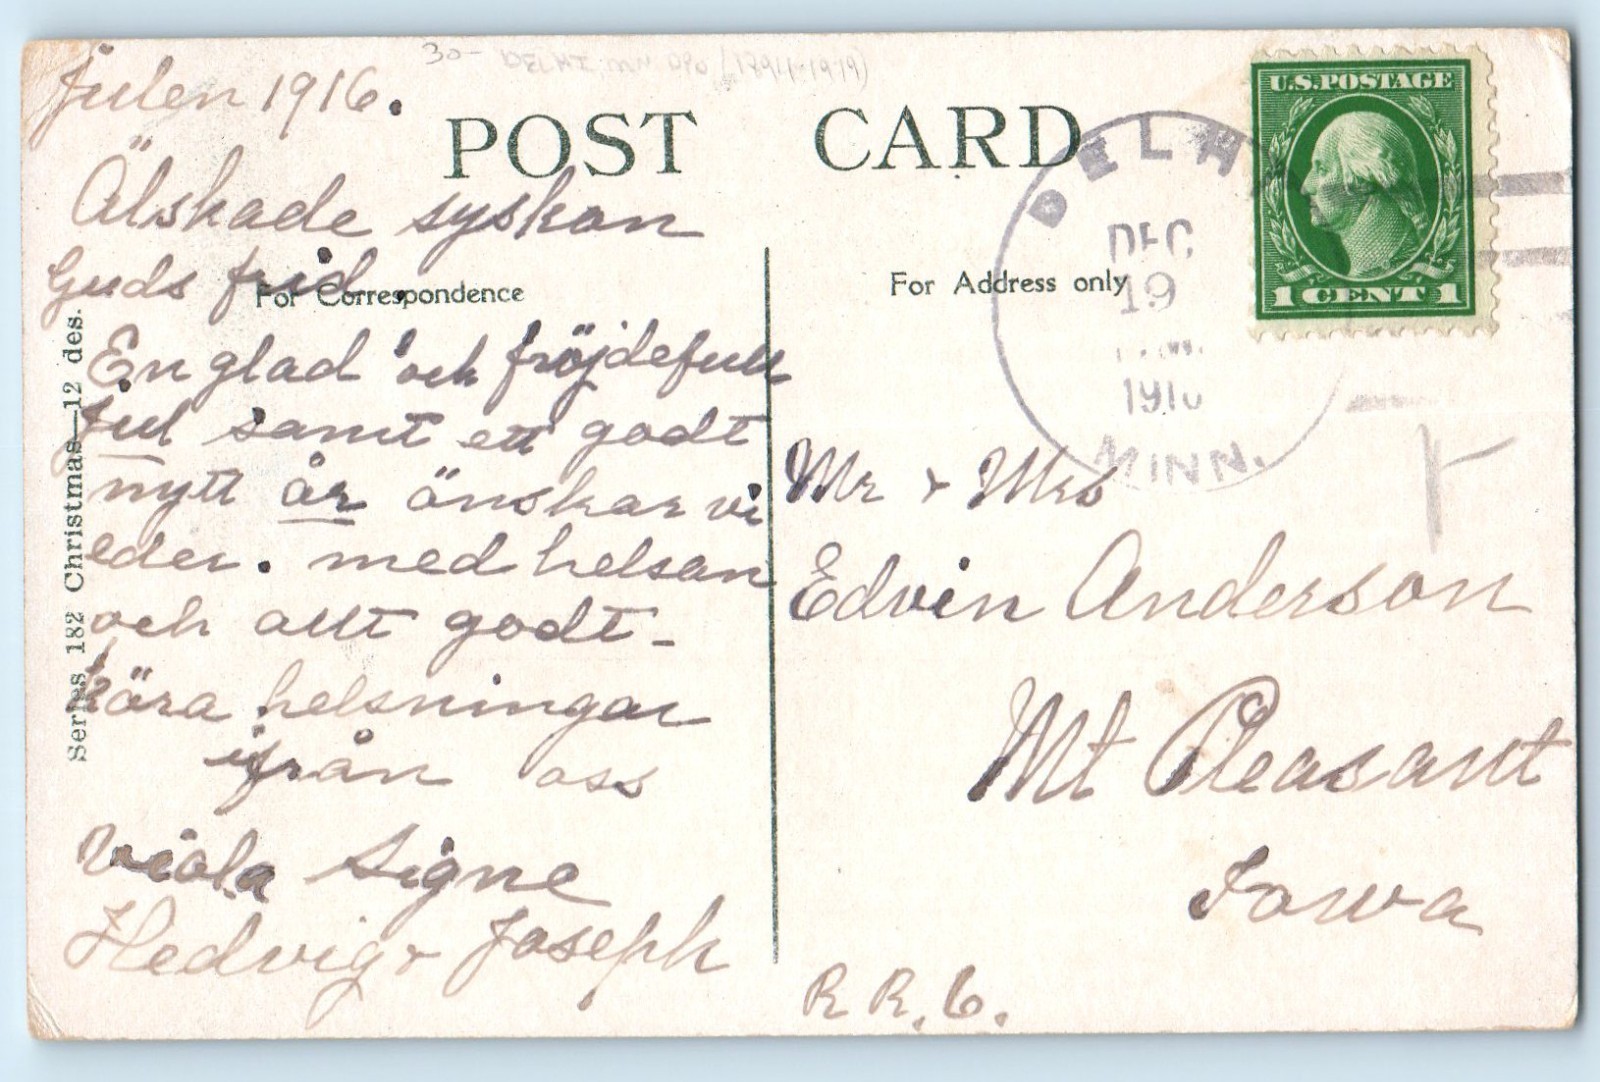 Julen 1916.
Älskade syskon
Guds frid.
En glad och fröjdefull
Jul samt ett godt
nytt år önskar vi
eder. med helsan
och allt godt -
kära helsningar
ifrån oss
Viola Signe
Hedvig + Joseph
30- DELHI, MN DPO
POST CARD
For Correspondence
For Address only
Series 182 Christmas—12 des.
U.S. POSTAGE
1 CENT 1
DELHI
DEC
19
1916
MINN.
Mr + Mrs
Edvin Anderson
Mt Pleasant
Iowa
R R. 6.